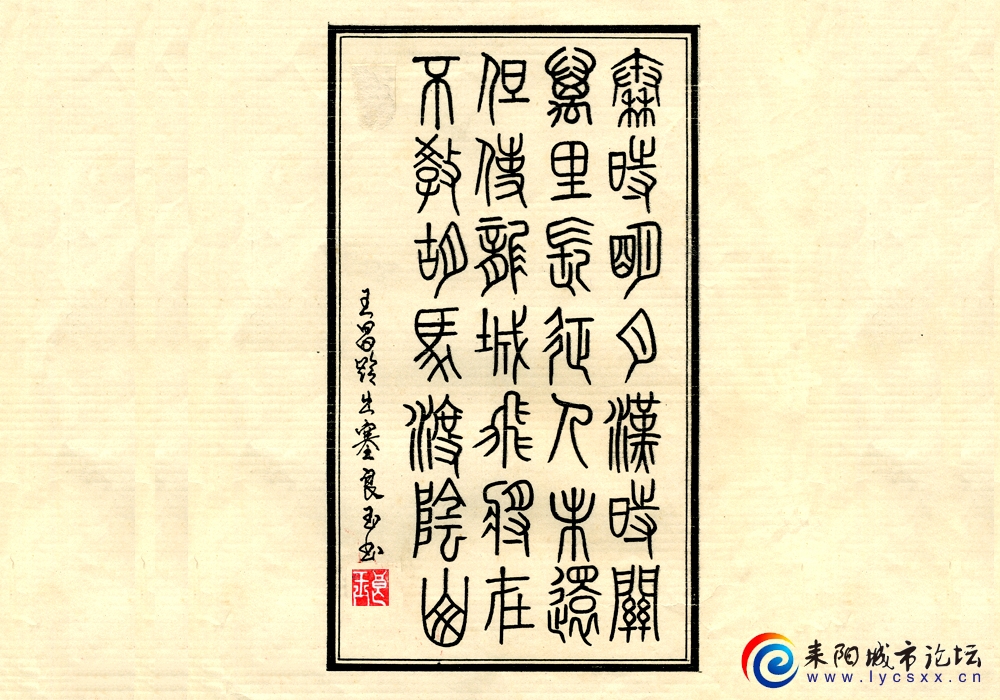 秦時明月漢時關
萬里長征人未還
但使龍城飛將在
不教胡馬渡陰山
王昌齡出塞良玉书
良玉
耒阳城市论坛
www.lycsxx.cn